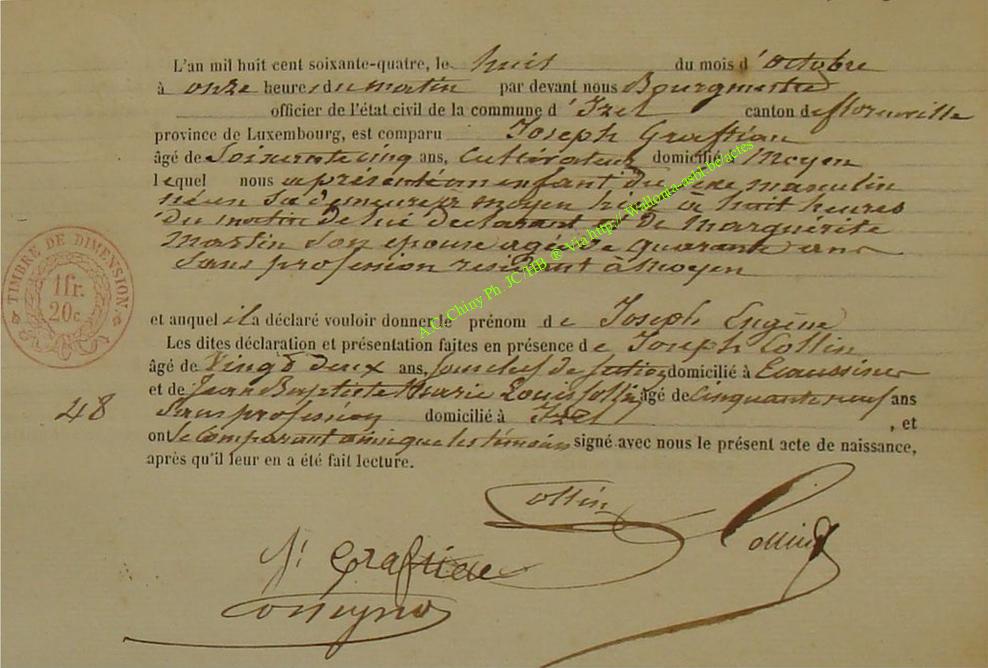 L'an mil huit cent soixante-quatre, le huit du mois d'octobre
à onze heures du matin par devant nous Bourgmestre
officier de l'état civil de la commune d'Izel canton de florenville
province de Luxembourg, est comparu Joseph Graftiau
âgé de Soixante cinq ans, Cultivateur domicilié à Moyen
lequel nous a présenté un enfant du sexe masculin
né en sa demeure à moyen hier à huit heures
du matin de lui declarant et de Marguérite
Martin son epouse agée de quarante ans
Sans profession residant à Moyen
et auquel il a déclaré vouloir donner le prénom de Joseph Eugène
Les dites déclaration et présentation faites en présence de Joseph Collin
âgé de Vingt deux ans, sous chef de station domicilié à Ecaussines
et de Jean Baptiste Marie Louis Collin âgé de Cinquante neuf ans
48 Sans profession domicilié à Izel, et
ont le Comparant ainsi que les témoins signé avec nous le présent acte de naissance,
après qu'il leur en a été fait lecture.
Collin
Collin
TIMBRE DE DIMENSION
1 fr.
20 c.
A.C. Chiny Ph. JC /HB ® Via http:// Wallonia-asbl.be/actes